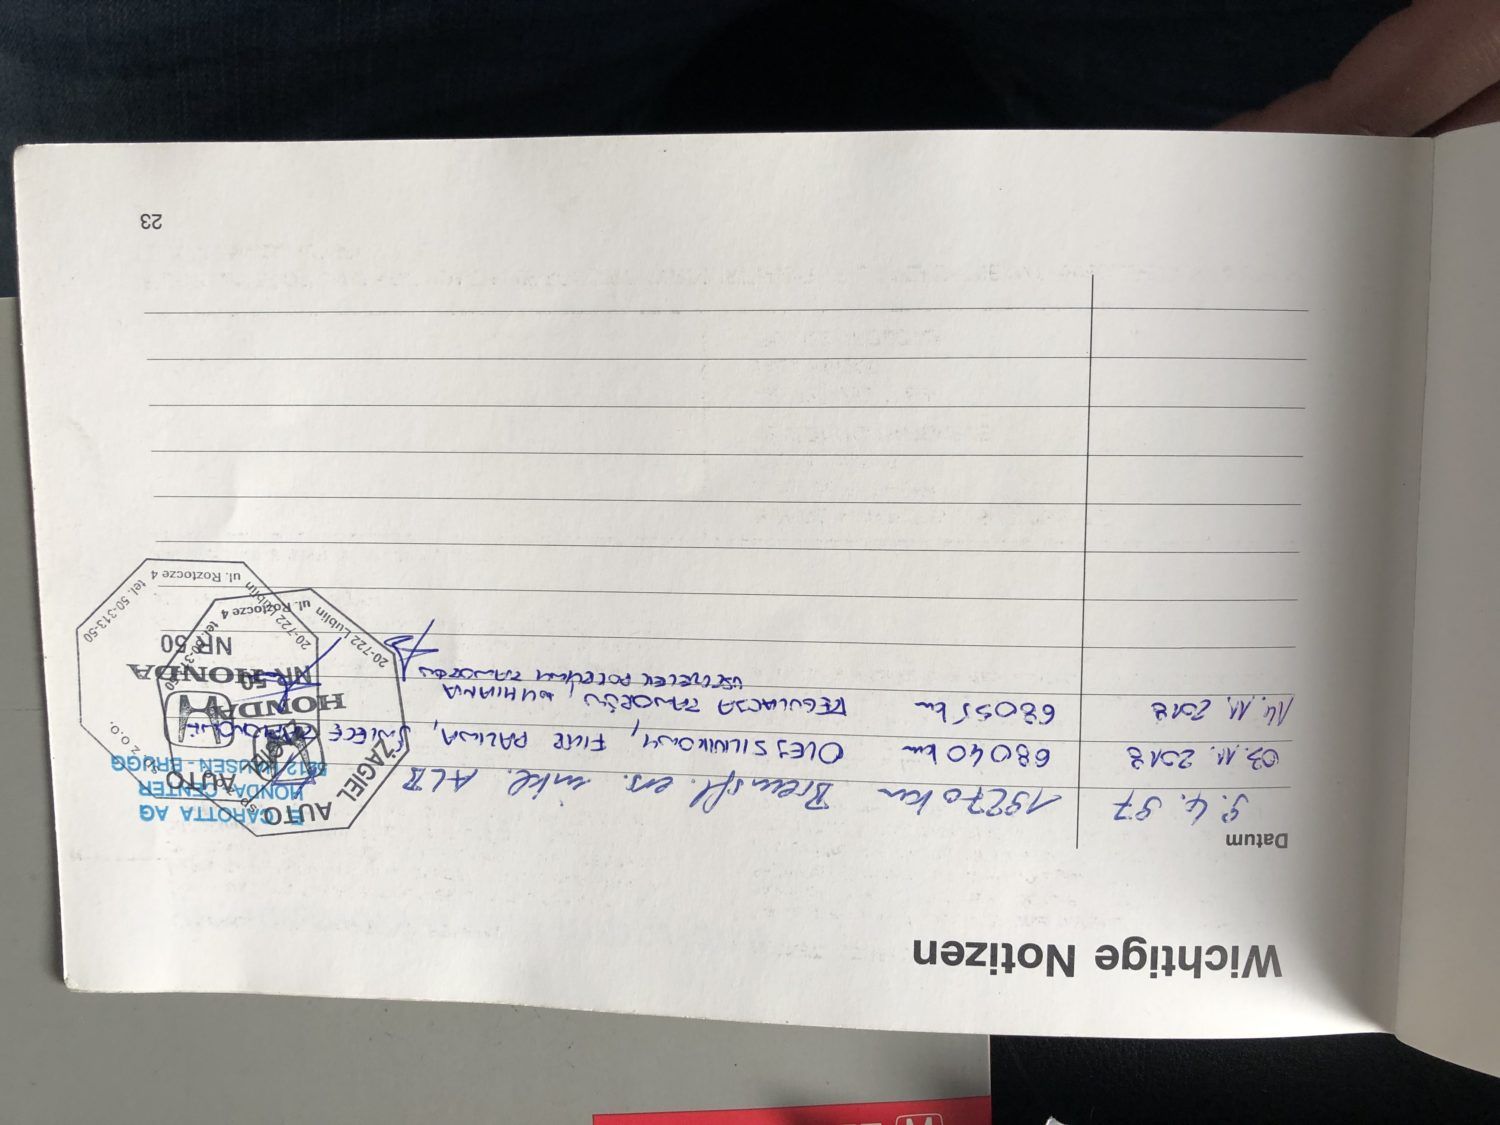 Wichtige Notizen
Datum
9.4.97 19270 km Bremsfl. ers. inkl. ALB
03.11.2018 68040 km OLEJ SILNIKOWY, FILTR PALIWA, ŚWIECE ZAPŁONOWE
14.11.2018 68055 km REGULACJA ZAWORÓW, WYMIANA
USZCZELEK POKRYWY ZAWORÓW
CAROTTA AG
HONDA-CENTER
HAUSEN - BRUGG
AUTO ŻAGIEL
HONDA
NR 50
20-722 Lublin ul. Roztocze 4
AUTO
z o.o.
HONDA
NR 50
20-722 Lublin ul. Roztocze 4 tel. 50-313-50
23